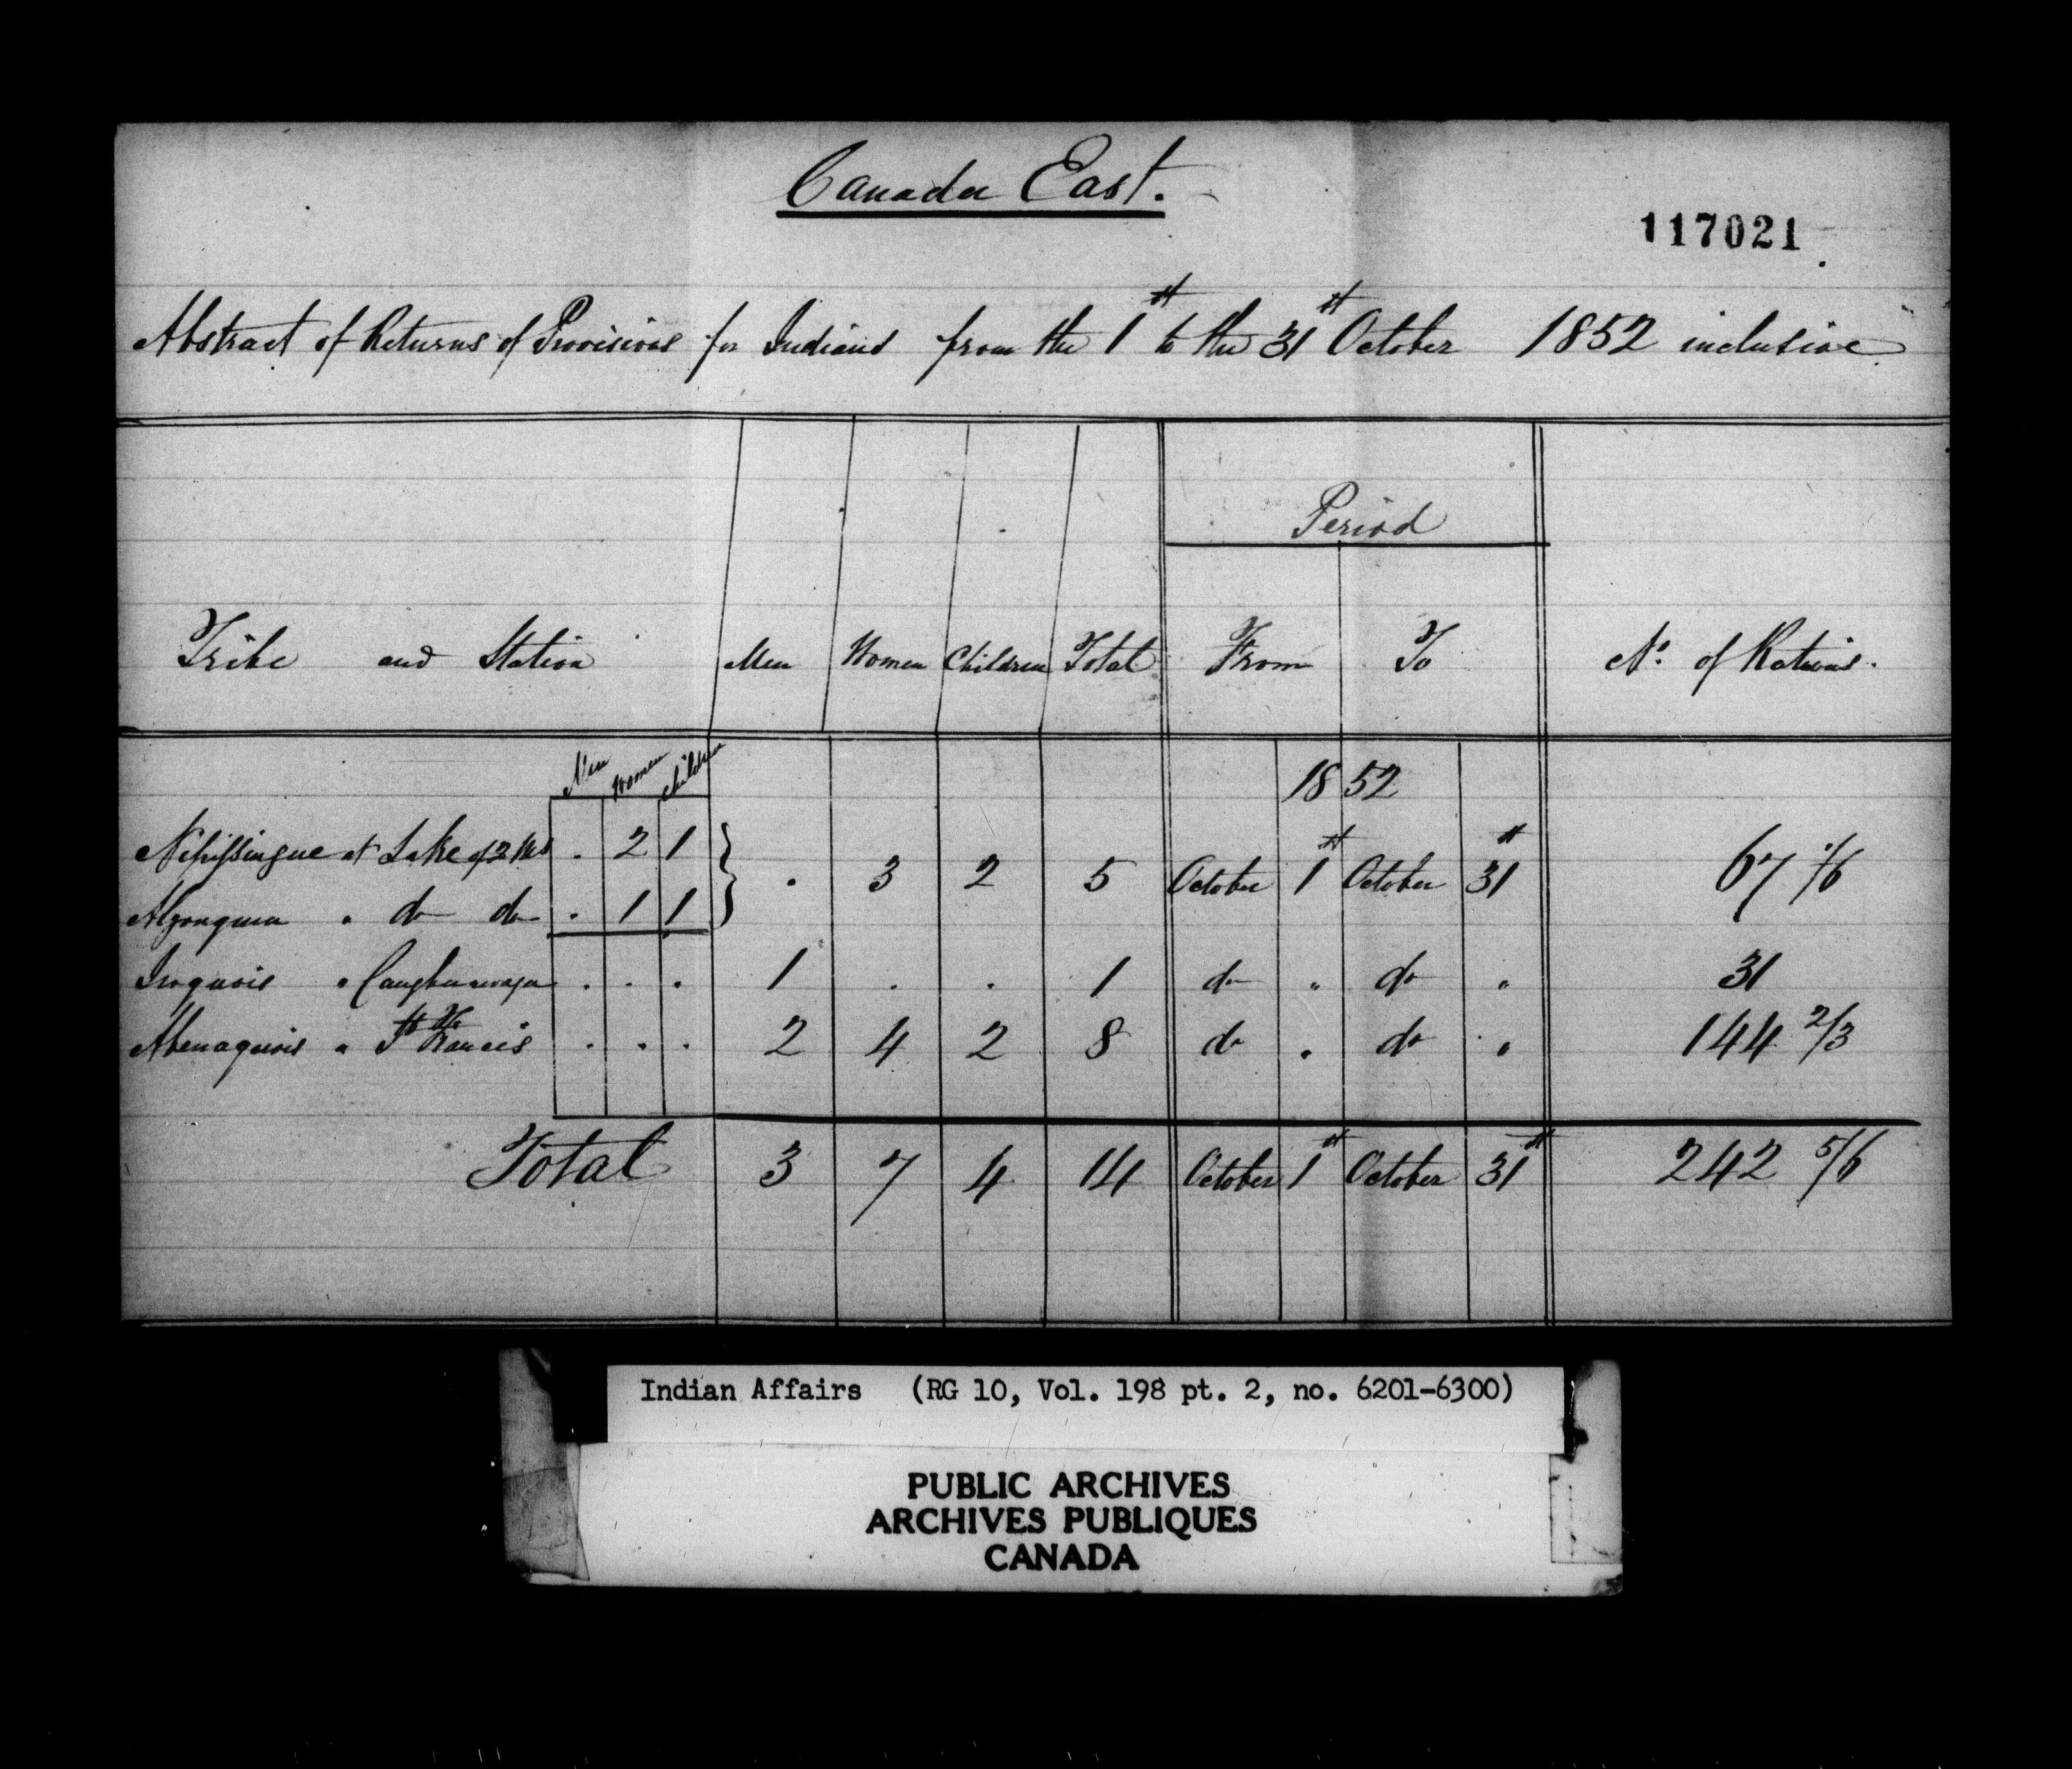 Canada East.
117021
Abstract of Returns of Provisions for Indians from the 1st to the 31st October 1852 inclusive
Period
Tribe and Station Men Women Children Total From To No. of Rations.
Men Women Children
1852
Nipissingue at Lake of 2 Mts . 2 1
} . 3 2 5 October 1st October 31st 67 1/6
Algonquin " do do . 1 1
Iroquois " Caughnawaga . . . 1 . . 1 do " do " 31
Abenaquois " St Francis . . . 2 4 2 8 do " do " 144 2/3
Total 3 7 4 14 October 1st October 31st 242 5/6
Indian Affairs (RG 10, Vol. 198 pt. 2, no. 6201-6300)
PUBLIC ARCHIVES
ARCHIVES PUBLIQUES
CANADA